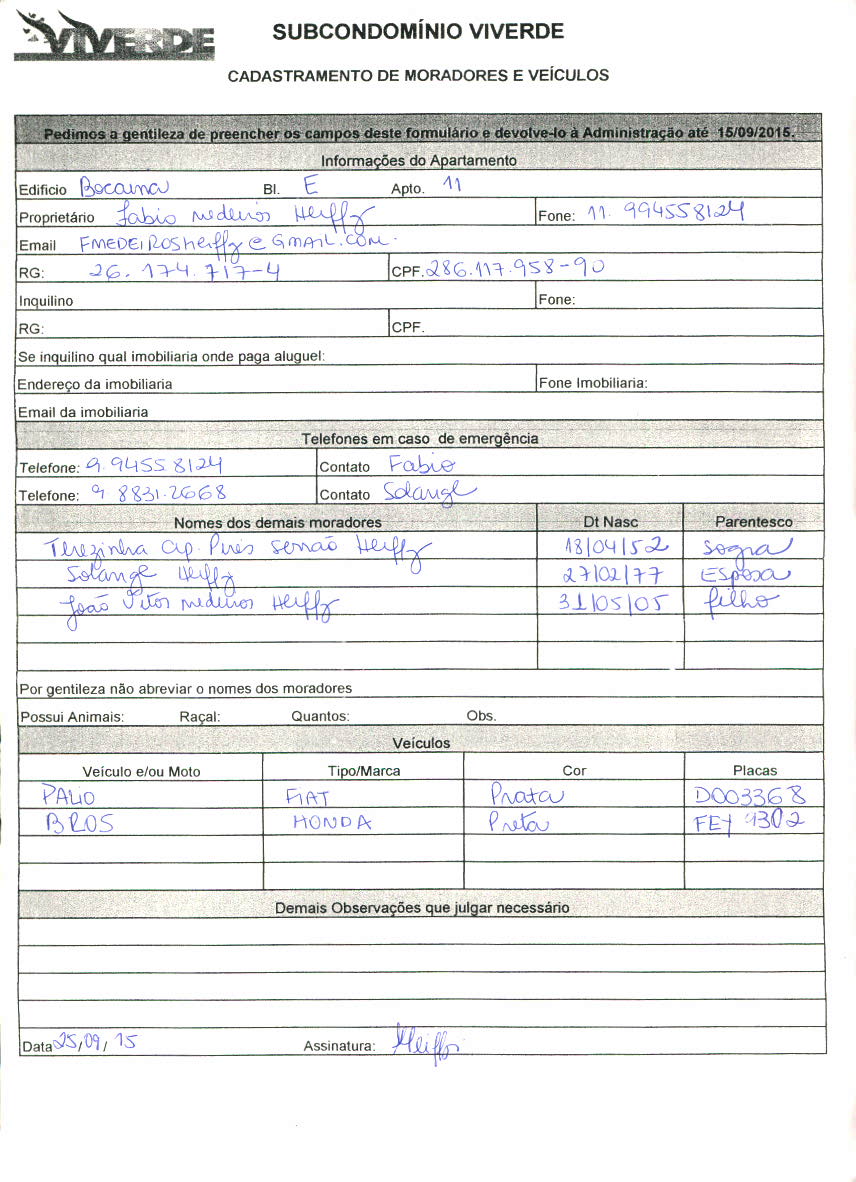 VIVERDE
SUBCONDOMÍNIO VIVERDE
CADASTRAMENTO DE MORADORES E VEÍCULOS
Pedimos a gentileza de preencher os campos deste formulário e devolve-lo à Administração até 15/09/2015.
Informações do Apartamento
Edificio Bocaina Bl. E Apto. 11
Proprietário Fabio medeiros Heiffz Fone: 11. 994558124
Email FMEDEIROSHeiffz@GMAIL.COM.
RG: 26.174.717-4 CPF. 286.117.958-90
Inquilino Fone:
RG: CPF.
Se inquilino qual imobiliaria onde paga aluguel:
Endereço da imobiliaria Fone Imobiliaria:
Email da imobiliaria
Telefones em caso de emergência
Telefone: 9.9455.8124 Contato Fabio
Telefone: 9 8831.2668 Contato Solange
Nomes dos demais moradores Dt Nasc Parentesco
Terezinha Ap. Pires Serrão Heiffz 18/04/52 Sogra
Solange Heiffz 27/02/77 Esposa
João Vitor medeiros Heiffz 31/05/05 filho
Por gentileza não abreviar o nomes dos moradores
Possui Animais: Raçal: Quantos: Obs.
Veículos
Veículo e/ou Moto Tipo/Marca Cor Placas
PALIO FIAT Prata DOO3368
BROS HONDA Preta 9302
Demais Observações que julgar necessário
Data 25/09/15 Assinatura: Heiffz